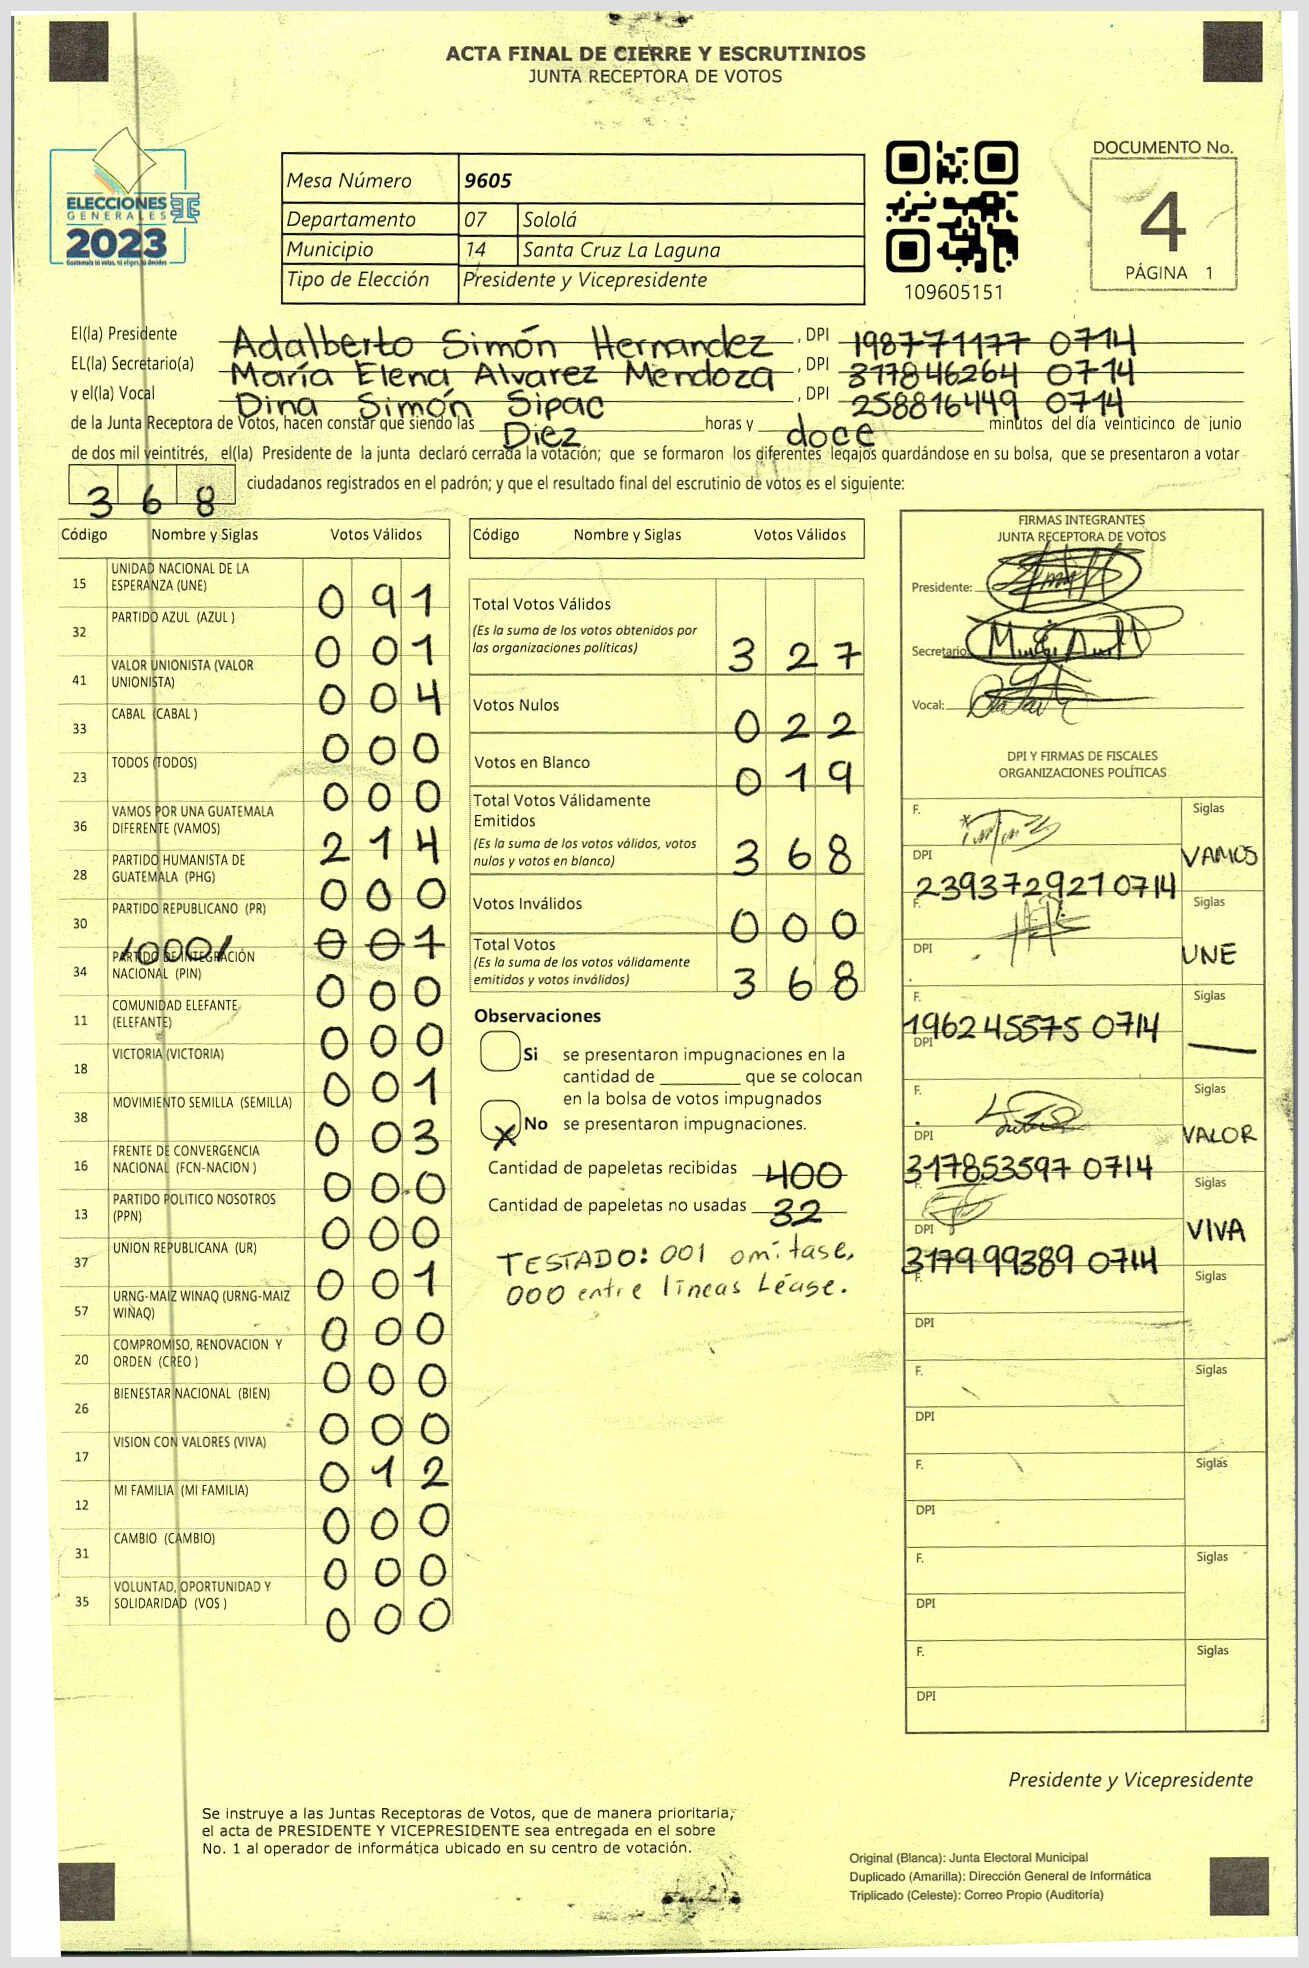 ACTA FINAL DE CIERRE Y ESCRUTINIOS
JUNTA RECEPTORA DE VOTOS
ELECCIONES
GENERALES
2023
Guatemala tú votas, tú eliges, tú decides
Mesa Número 9605
Departamento 07 Sololá
Municipio 14 Santa Cruz La Laguna
Tipo de Elección Presidente y Vicepresidente
109605151
DOCUMENTO No.
4
PÁGINA 1
El(la) Presidente Adalberto Simón Hernandez, DPI 198771177 0714
EL(la) Secretario(a) María Elena Alvarez Mendoza, DPI 317846264 0714
y el(la) Vocal Dina Simón Sipac, DPI 258816449 0714
de la Junta Receptora de Votos, hacen constar que siendo las Diez horas y doce minutos del día veinticinco de junio
de dos mil veintitrés, el(la) Presidente de la junta declaró cerrada la votación; que se formaron los diferentes legajos guardándose en su bolsa, que se presentaron a votar
368 ciudadanos registrados en el padrón; y que el resultado final del escrutinio de votos es el siguiente:
Código Nombre y Siglas Votos Válidos
15 UNIDAD NACIONAL DE LA ESPERANZA (UNE) 091
32 PARTIDO AZUL (AZUL ) 001
41 VALOR UNIONISTA (VALOR UNIONISTA) 004
33 CABAL (CABAL ) 000
23 TODOS (TODOS) 000
36 VAMOS POR UNA GUATEMALA DIFERENTE (VAMOS) 214
28 PARTIDO HUMANISTA DE GUATEMALA (PHG) 000
30 PARTIDO REPUBLICANO (PR) 001
/000/
34 PARTIDO DE INTEGRACIÓN NACIONAL (PIN) 000
11 COMUNIDAD ELEFANTE (ELEFANTE) 000
18 VICTORIA (VICTORIA) 001
38 MOVIMIENTO SEMILLA (SEMILLA) 003
16 FRENTE DE CONVERGENCIA NACIONAL (FCN-NACION ) 000
13 PARTIDO POLITICO NOSOTROS (PPN) 000
37 UNION REPUBLICANA (UR) 001
57 URNG-MAIZ WINAQ (URNG-MAIZ WINAQ) 000
20 COMPROMISO, RENOVACION Y ORDEN (CREO ) 000
26 BIENESTAR NACIONAL (BIEN) 000
17 VISION CON VALORES (VIVA) 012
12 MI FAMILIA (MI FAMILIA) 000
31 CAMBIO (CAMBIO) 000
35 VOLUNTAD, OPORTUNIDAD Y SOLIDARIDAD (VOS ) 000
Código Nombre y Siglas Votos Válidos
Total Votos Válidos
(Es la suma de los votos obtenidos por
las organizaciones políticas) 327
Votos Nulos 022
Votos en Blanco 019
Total Votos Válidamente
Emitidos
(Es la suma de los votos válidos, votos
nulos y votos en blanco) 368
Votos Inválidos 000
Total Votos
(Es la suma de los votos válidamente
emitidos y votos inválidos) 368
Observaciones
Si se presentaron impugnaciones en la
cantidad de ________ que se colocan
en la bolsa de votos impugnados
X No se presentaron impugnaciones.
Cantidad de papeletas recibidas 400
Cantidad de papeletas no usadas 32
TESTADO: 001 omítase,
000 entre líneas Léase.
FIRMAS INTEGRANTES
JUNTA RECEPTORA DE VOTOS
Presidente:
Secretario:
Vocal:
DPI Y FIRMAS DE FISCALES
ORGANIZACIONES POLÍTICAS
F. Siglas
DPI VAMOS
239372921 0714
F. Siglas
DPI UNE
F. Siglas
196245575 0714
DPI
F. Siglas
DPI VALOR
317853597 0714
F. Siglas
DPI VIVA
317999389 0714
F. Siglas
DPI
F. Siglas
DPI
F. Siglas
DPI
F. Siglas
DPI
F. Siglas
DPI
Presidente y Vicepresidente
Se instruye a las Juntas Receptoras de Votos, que de manera prioritaria,
el acta de PRESIDENTE Y VICEPRESIDENTE sea entregada en el sobre
No. 1 al operador de informática ubicado en su centro de votación.
Original (Blanca): Junta Electoral Municipal
Duplicado (Amarilla): Dirección General de Informática
Triplicado (Celeste): Correo Propio (Auditoría)